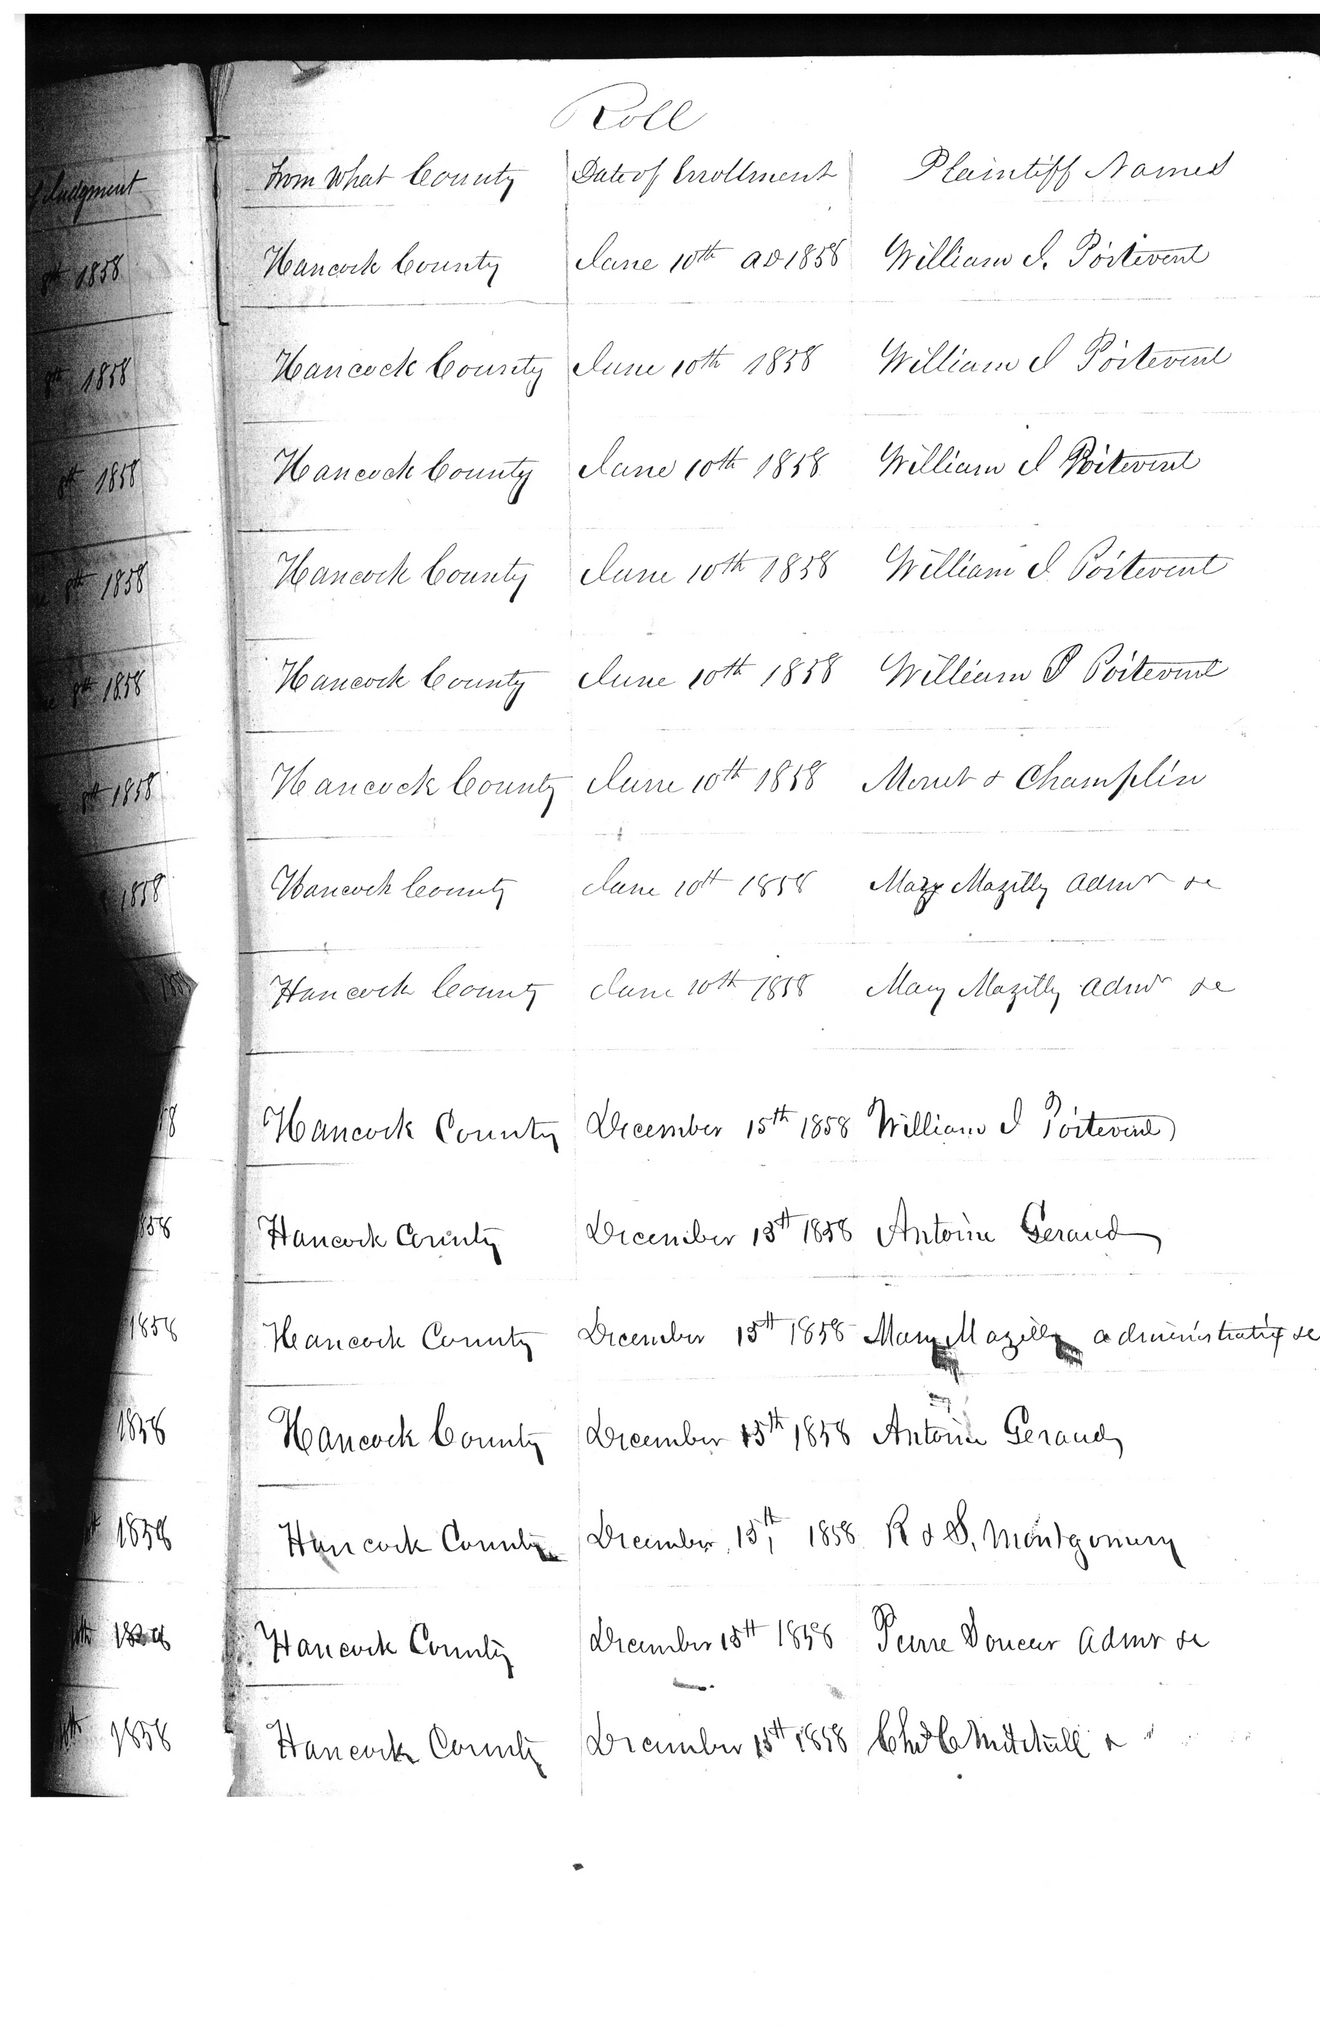 Roll
f Judgment From What County Date of Enrollment Plaintiff Names
8th 1858 Hancock County June 10th AD 1858 William J. Poitevent
8th 1858 Hancock County June 10th 1858 William J Poitevent
8th 1858 Hancock County June 10th 1858 William J Poitevent
8th 1858 Hancock County June 10th 1858 William J Poitevent
8th 1858 Hancock County June 10th 1858 William J Poitevent
8th 1858 Hancock County June 10th 1858 & Champlin
1858 Hancock County June 10th 1858 Mary Mazilly Admr &c
Hancock County June 10th 1858 Mary Mazilly Admr &c
58 Hancock County December 15th 1858 William J Poitevent
858 Hancock County December 15th 1858 Antoine Geraud
1858 Hancock County December 15th 1858 Mary Mazilly administratrix &c
1858 Hancock County December 15th 1858 Antoine Geraud
1858 Hancock County December 15th 1858 R & S. Montgomery
Hancock County December 15th 1858 Pierre Doucer Admr &c
1858 Hancock County December 15th 1858 C Mitchell &